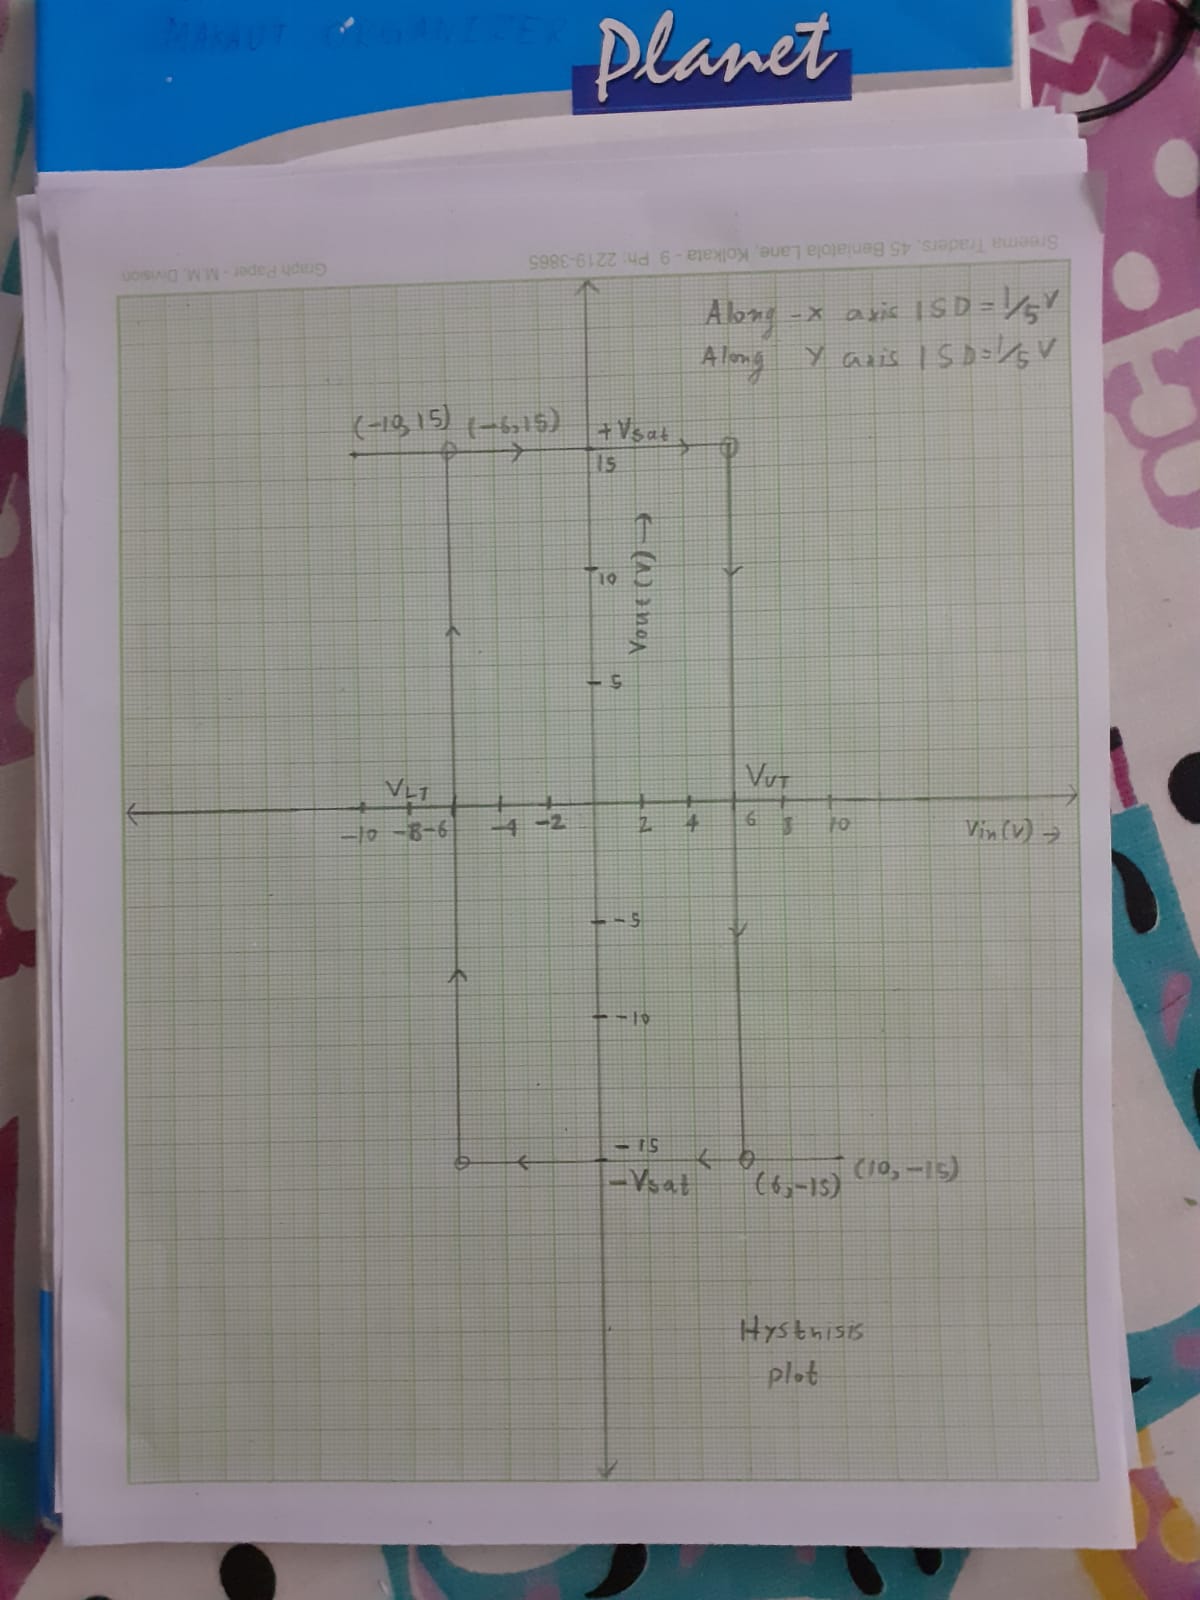 MAKAUT ORGANIZER
Planet
Sreema Traders, 45 Beniatola Lane, Kolkata - 9 Ph: 2219-3865
Graph Paper - M.M. Division
Along -X axis 1SD = 1/5 V
Along Y axis 1SD = 1/5 V
(-10,15) (-6,15)
+Vsat
15
10
Vout (V) →
5
VLT
VUT
-10 -8 -6 -4 -2 2 4 6 8 10
Vin(V) →
-5
-10
-15
-Vsat
(6,-15)
(10,-15)
Hystnisis
plot